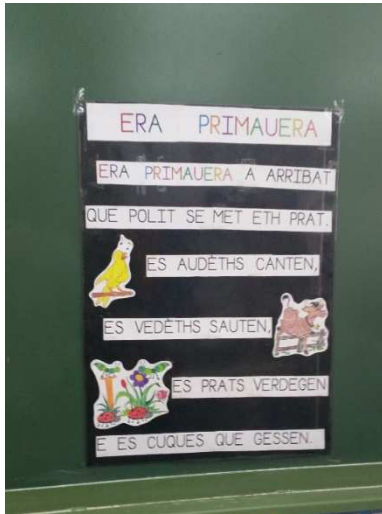 ERA PRIMAUERA
ERA PRIMAUERA A ARRIBAT
QUE POLIT SE MET ETH PRAT.
ES AUDÈTHS CANTEN,
ES VEDÈTHS SAUTEN,
ES PRATS VERDEGEN
E ES CUQUES QUE GESSEN.